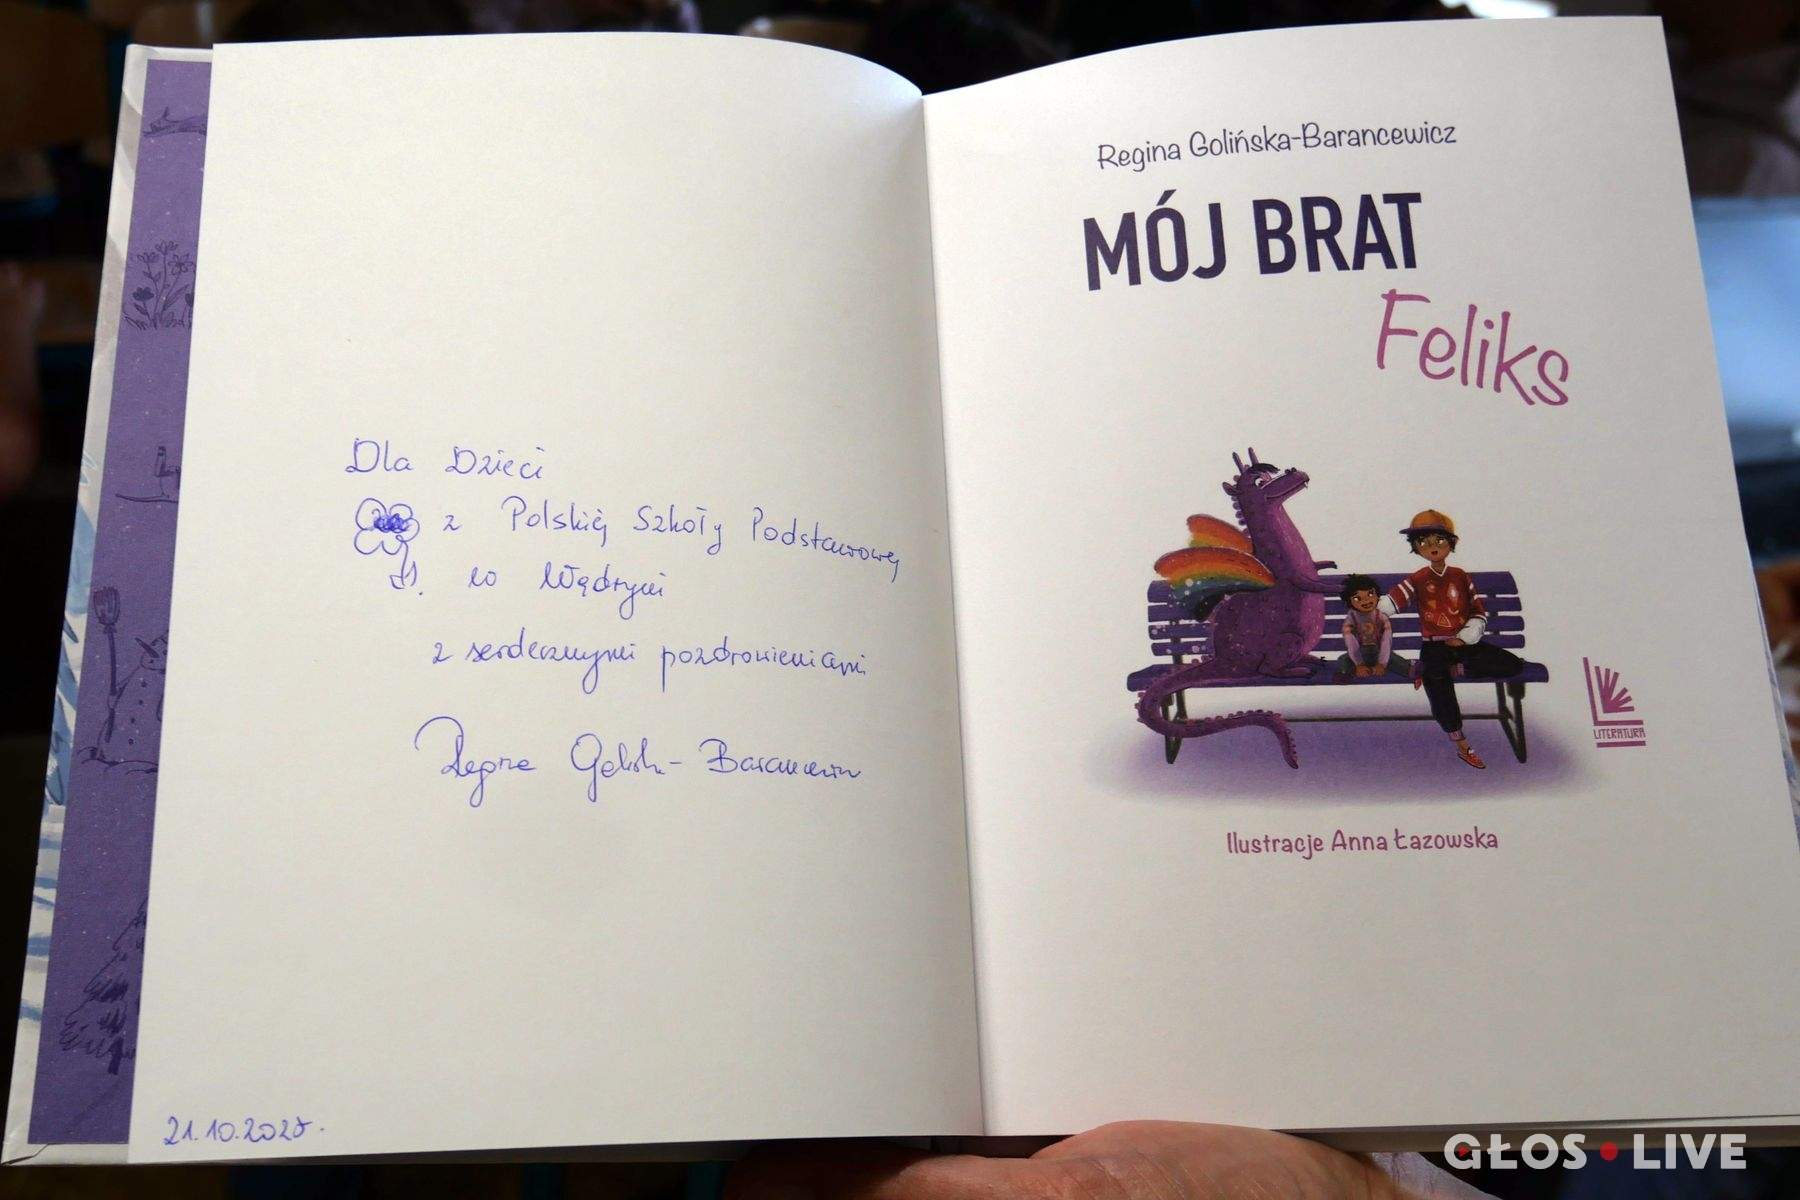 Dla Dzieci
z Polskiej Szkoły Podstawowej
w Wędryni
z serdecznymi pozdrowieniami
Regina Golińska-Barancewicz
21.10.2025.
Regina Golińska-Barancewicz
MÓJ BRAT
Feliks
LITERATURA
Ilustracje Anna Łazowska
GŁOS LIVE